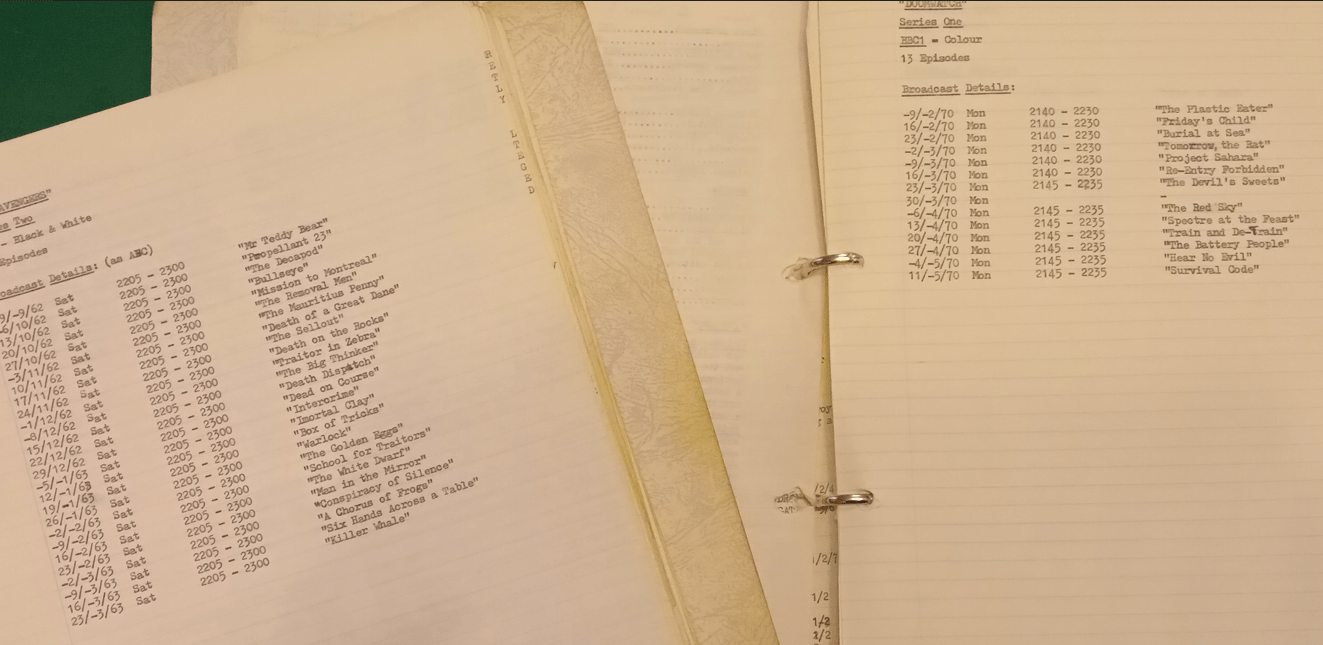 AVENGERS"
es Two
- Black & White
Episodes
oadcast Details: (as ABC)
9/-9/62 Sat 2205 - 2300 "Mr Teddy Bear"
-6/10/62 Sat 2205 - 2300 "Propellant 23"
13/10/62 Sat 2205 - 2300 "The Decapod"
20/10/62 Sat 2205 - 2300 "Bullseye"
27/10/62 Sat 2205 - 2300 "Mission to Montreal"
-3/11/62 Sat 2205 - 2300 "The Removal Men"
10/11/62 Sat 2205 - 2300 "The Mauritius Penny
17/11/62 Sat 2205 - 2300 "Death of a Great Dane"
24/11/62 Sat 2205 - 2300 "The Sellout"
-1/12/62 Sat 2205 - 2300 "Death on the Rocks"
-8/12/62 Sat 2205 - 2300 "Traitor in Zebra"
15/12/62 Sat 2205 - 2300 "The Big Thinker"
22/12/62 Sat 2205 - 2300 "Death Dispatch"
29/12/62 Sat 2205 - 2300 "Dead on Course"
-5/-1/63 Sat 2205 - 2300 "Intercrime"
12/-1/63 Sat 2205 - 2300 "Imortal Clay"
19/-1/63 Sat 2205 - 2300 "Box of Tricks"
26/-1/63 Sat 2205 - 2300 "Warlock"
-2/-2/63 Sat 2205 - 2300 "The Golden Eggs"
-9/-2/63 Sat 2205 - 2300 "School for Traitors"
16/-2/63 Sat 2205 - 2300 "The White Dwarf"
23/-2/63 Sat 2205 - 2300 "Man in the Mirror"
-2/-3/63 Sat 2205 - 2300 "Conspiracy of Silence"
-9/-3/63 Sat 2205 - 2300 "A Chorus of Frogs"
16/-3/63 Sat 2205 - 2300 "Six Hands Across a Table"
23/-3/63 Sat 2205 - 2300 "Killer Whale"
"DOOMWATCH"
Series One
BBC1 - Colour
13 Episodes
Broadcast Details:
-9/-2/70 Mon 2140 - 2230 "The Plastic Eater"
16/-2/70 Mon 2140 - 2230 "Friday's Child"
23/-2/70 Mon 2140 - 2230 "Burial at Sea"
-2/-3/70 Mon 2140 - 2230 "Tomorrow, the Rat"
-9/-3/70 Mon 2140 - 2230 "Project Sahara"
16/-3/70 Mon 2140 - 2230 "Re-Entry Forbidden"
23/-3/70 Mon 2145 - 2235 "The Devil's Sweets"
30/-3/70 Mon -
-6/-4/70 Mon 2145 - 2235 "The Red Sky"
13/-4/70 Mon 2145 - 2235 "Spectre at the Feast"
20/-4/70 Mon 2145 - 2235 "Train and De-Train"
27/-4/70 Mon 2145 - 2235 "The Battery People"
-4/-5/70 Mon 2145 - 2235 "Hear No Evil"
11/-5/70 Mon 2145 - 2235 "Survival Code"
1/2
1/2
2/2